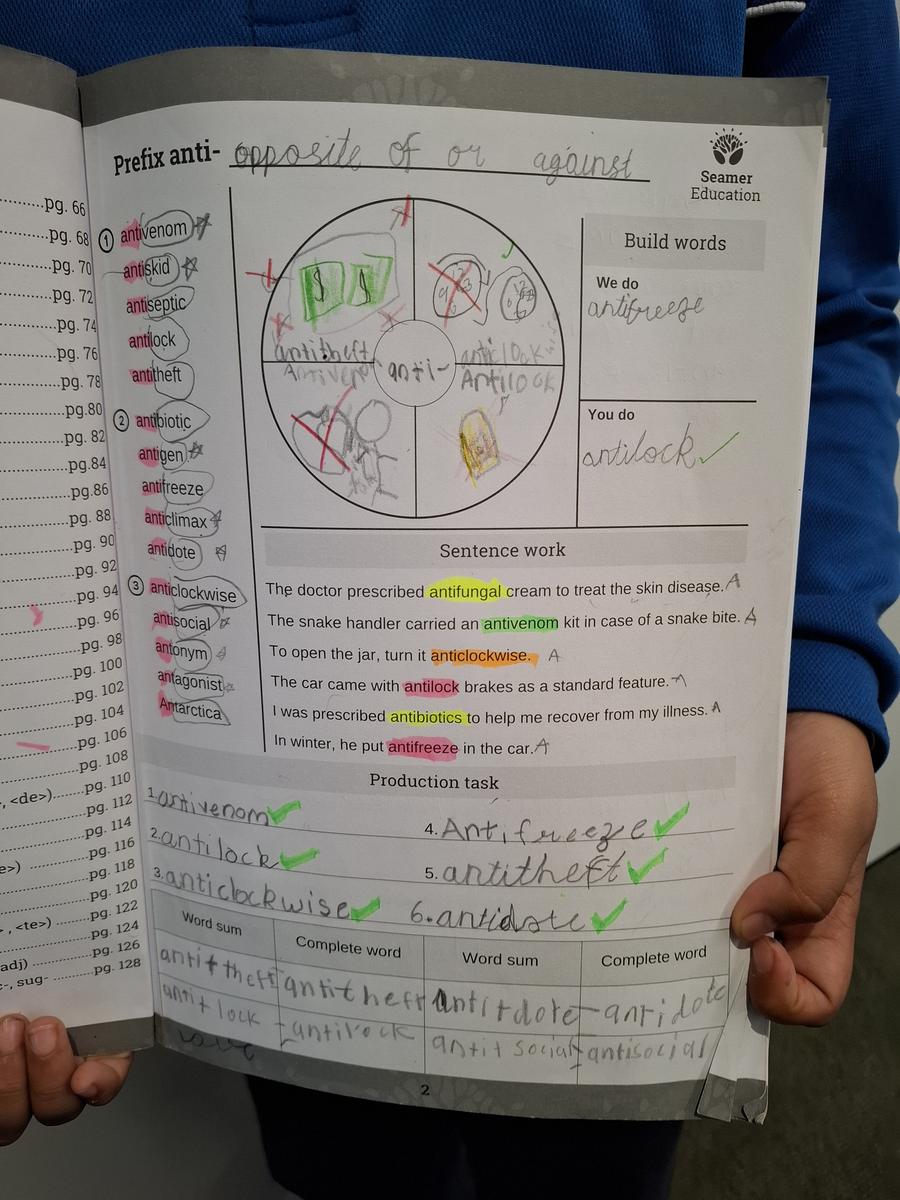 Prefix anti- opposite of or against
Seamer
Education
...pg. 66
...pg. 68
...pg. 70
...pg. 72
...pg. 74
...pg. 76
...pg. 78
...pg.80
...pg. 82
...pg.84
...pg.86
...pg. 88
...pg. 90
...pg. 92
...pg. 94
...pg. 96
...pg. 98
...pg. 100
...pg. 102
...pg. 104
...pg. 106
...pg. 108
, <de>)...pg. 110
...pg. 112
...pg. 114
e>)...pg. 116
...pg. 118
...pg. 120
, <te>)...pg. 122
...pg. 124
adj)...pg. 126
-, sug-...pg. 128
1 antivenom
antiskid
antiseptic
antilock
antitheft
2 antibiotic
antigen
antifreeze
anticlimax
antidote
3 anticlockwise
antisocial
antonym
antagonist
Antarctica
$ $
antitheft
anticlock
anti-
Antivenom
Antilock
Build words
We do
antifreeze
You do
antilock
Sentence work
The doctor prescribed antifungal cream to treat the skin disease. A
The snake handler carried an antivenom kit in case of a snake bite. A
To open the jar, turn it anticlockwise. A
The car came with antilock brakes as a standard feature. A
I was prescribed antibiotics to help me recover from my illness. A
In winter, he put antifreeze in the car. A
Production task
1. antivenom
2. antilock
3. anticlockwise
4. Antifreeze
5. antitheft
6. antidote
Word sum Complete word Word sum Complete word
anti + theft antitheft anti + dote - antidote
anti + lock - antilock anti + social - antisocial
2